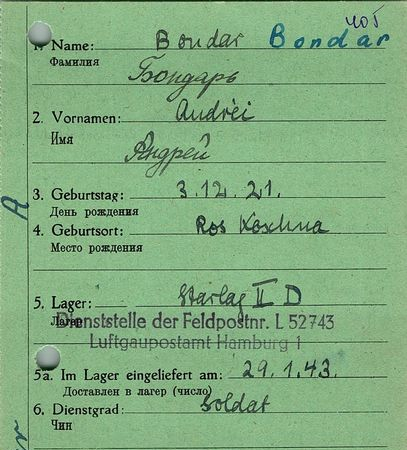 405
1. Name: Bondar Bondar
Фамилия Бондарь
2. Vornamen: Andrei
Имя Андрей
3. Geburtstag: 3.12.21.
День рождения
4. Geburtsort: Ros Koschna
Место рождения
5. Lager: Starlag II D
Лагер
Dienststelle der Feldpostnr. L 52743
Luftgaupostamt Hamburg 1
5a. Im Lager eingeliefert am: 29.1.43.
Доставлен в лагер (число)
6. Dienstgrad: Soldat
Чин
A